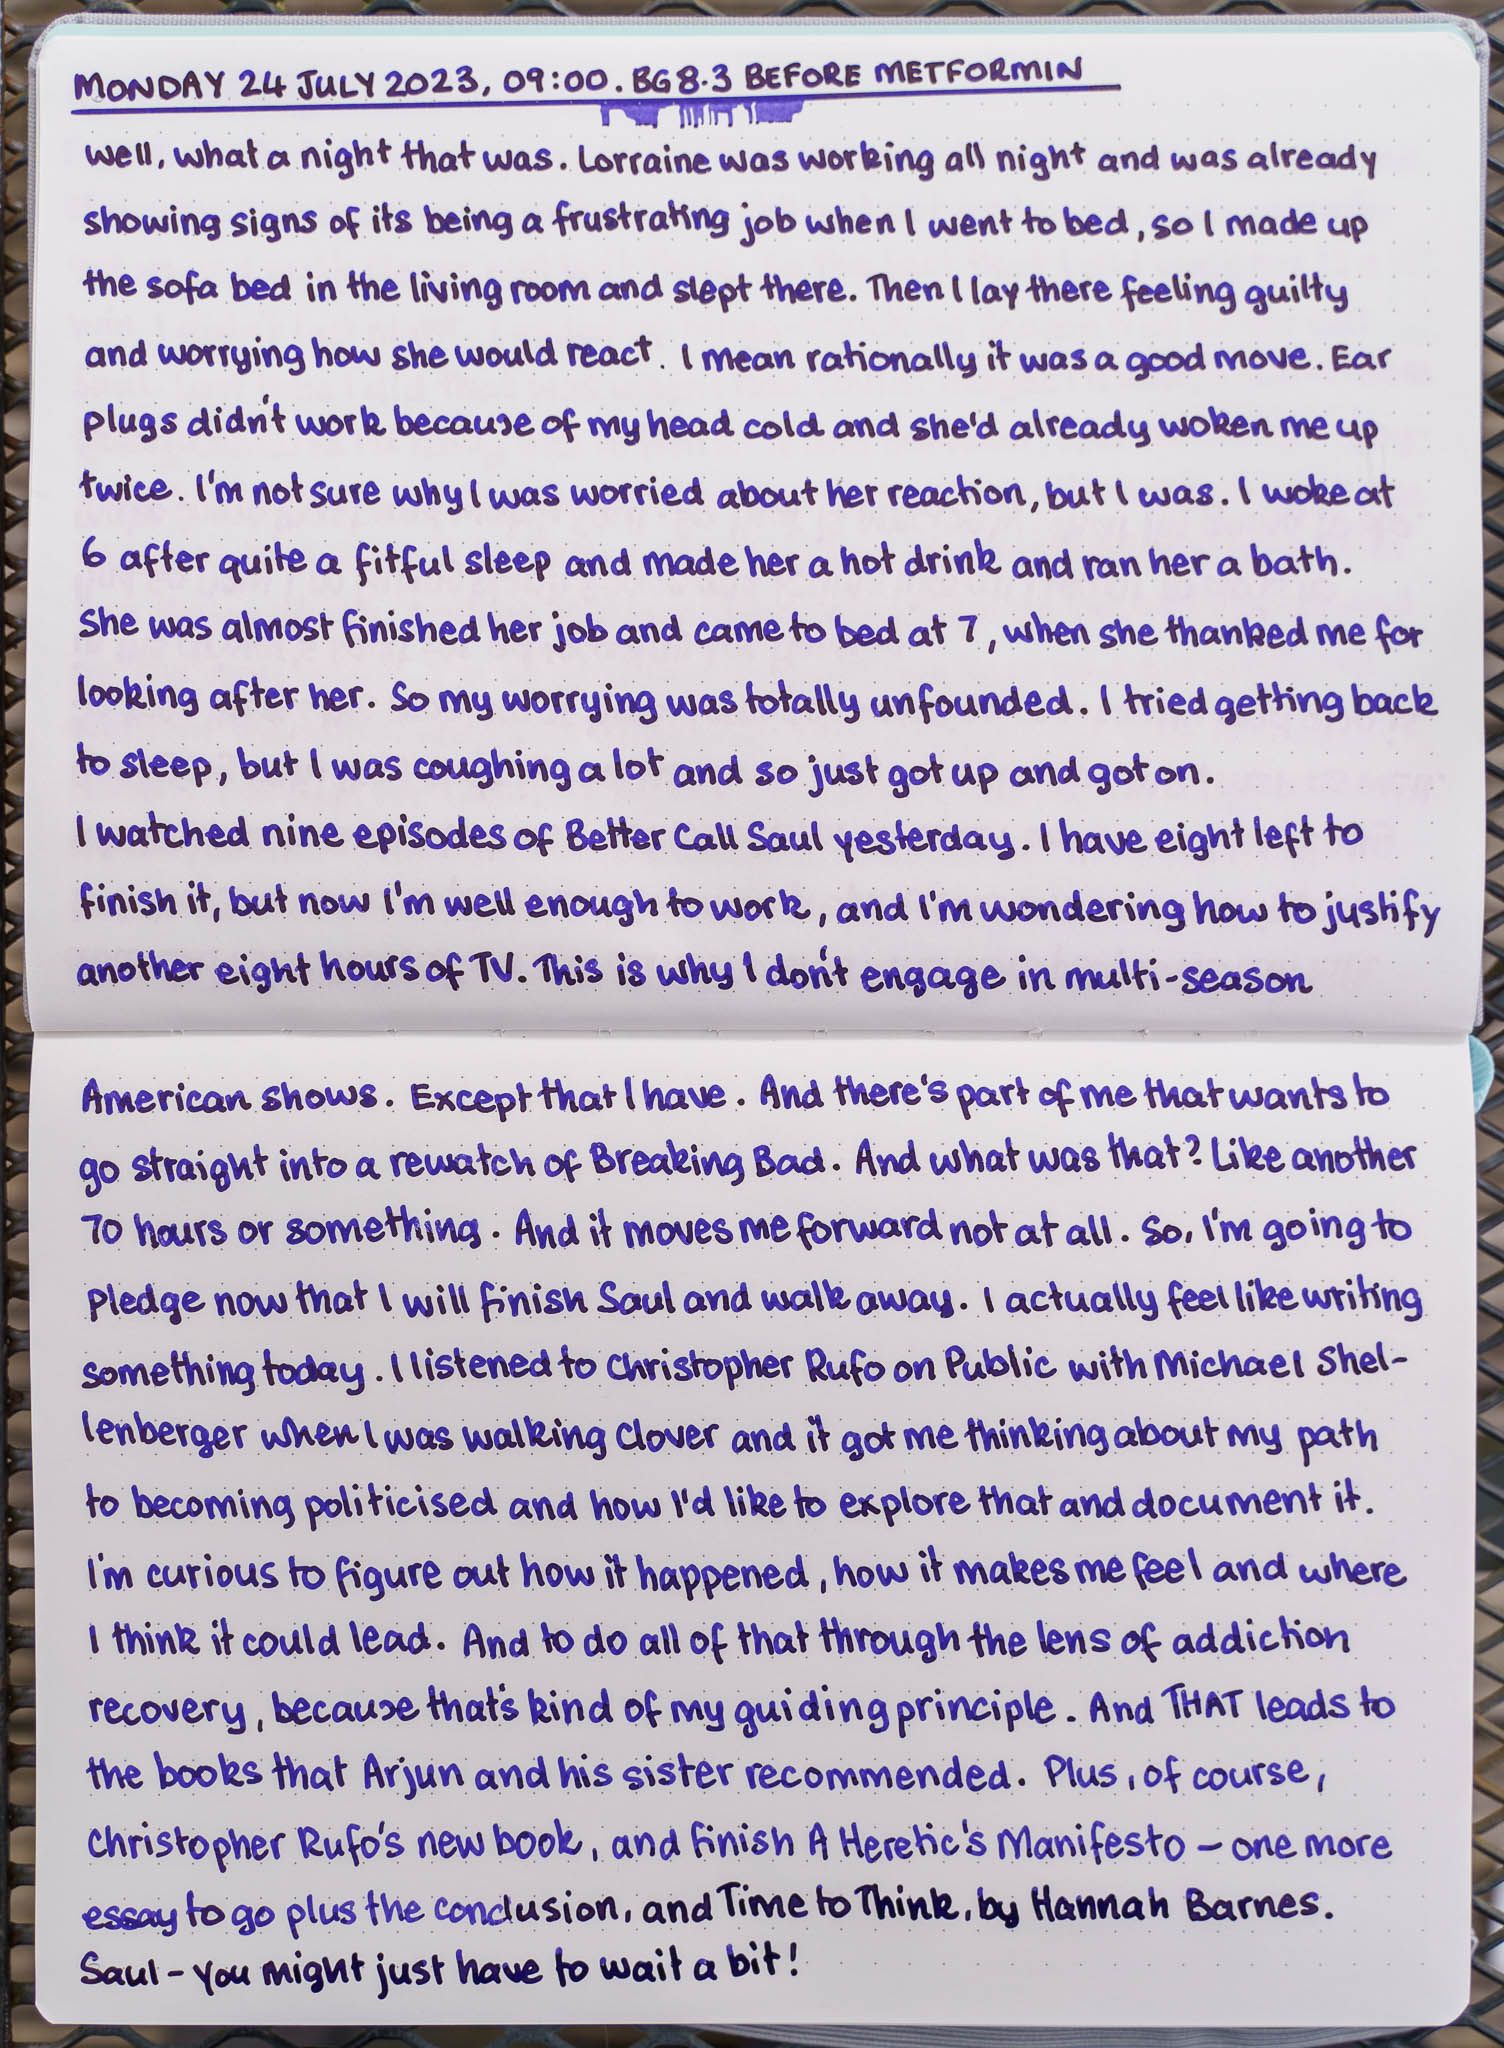 MONDAY 24 JULY 2023, 09:00. BG 8.3 BEFORE METFORMIN
Well, what a night that was. Lorraine was working all night and was already
showing signs of its being a frustrating job when I went to bed, so I made up
the sofa bed in the living room and slept there. Then I lay there feeling guilty
and worrying how she would react. I mean rationally it was a good move. Ear
plugs didn't work because of my head cold and she'd already woken me up
twice. I'm not sure why I was worried about her reaction, but I was. I woke at
6 after quite a fitful sleep and made her a hot drink and ran her a bath.
She was almost finished her job and came to bed at 7, when she thanked me for
looking after her. So my worrying was totally unfounded. I tried getting back
to sleep, but I was coughing a lot and so just got up and got on.
I watched nine episodes of Better Call Saul yesterday. I have eight left to
finish it, but now I'm well enough to work, and I'm wondering how to justify
another eight hours of TV. This is why I don't engage in multi-season
American shows. Except that I have. And there's part of me that wants to
go straight into a rewatch of Breaking Bad. And what was that? Like another
70 hours or something. And it moves me forward not at all. So, I'm going to
pledge now that I will finish Saul and walk away. I actually feel like writing
something today. I listened to Christopher Rufo on Public with Michael Shel-
lenberger when I was walking Clover and it got me thinking about my path
to becoming politicised and how I'd like to explore that and document it.
I'm curious to figure out how it happened, how it makes me feel and where
I think it could lead. And to do all of that through the lens of addiction
recovery, because that's kind of my guiding principle. And THAT leads to
the books that Arjun and his sister recommended. Plus, of course,
Christopher Rufo's new book, and finish A Heretic's Manifesto – one more
essay to go plus the conclusion, and Time to Think, by Hannah Barnes.
Saul – you might just have to wait a bit!